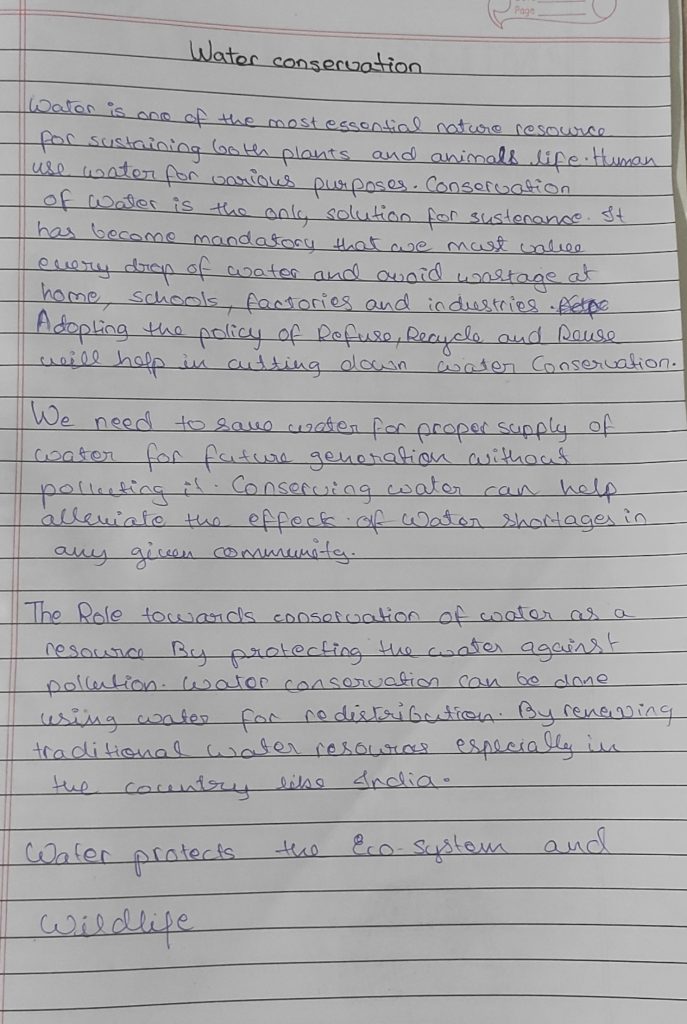 Page
Water conservation
Water is one of the most essential nature resource
for sustaining both plants and animals life. Human
use water for various purposes. Conservation
of water is the only solution for sustenance. It
has become mandatory that we must value
every drop of water and avoid wastage at
home, schools, factories and industries.
Adopting the policy of Refuse, Recycle and Reuse
will help in cutting down water Conservation.
We need to save water for proper supply of
water for future generation without
polluting it. Conserving water can help
alleviate the effect of water shortages in
any given community.
The Role towards conservation of water as a
resource By protecting the water against
pollution. Water conservation can be done
using water for redistribution. By renewing
traditional water resources especially in
the country like India.
Water protects the Eco-system and
Wildlife